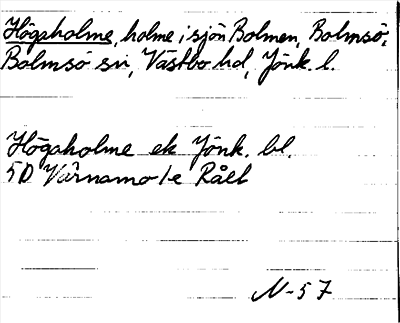 Högaholme, holme i sjön Bolmen, Bolmsö,
Bolmsö sn, Västbo hd, Jönk. l.
Högaholme ek Jönk. bl.
5D Värnamo 1e Råel
N-57